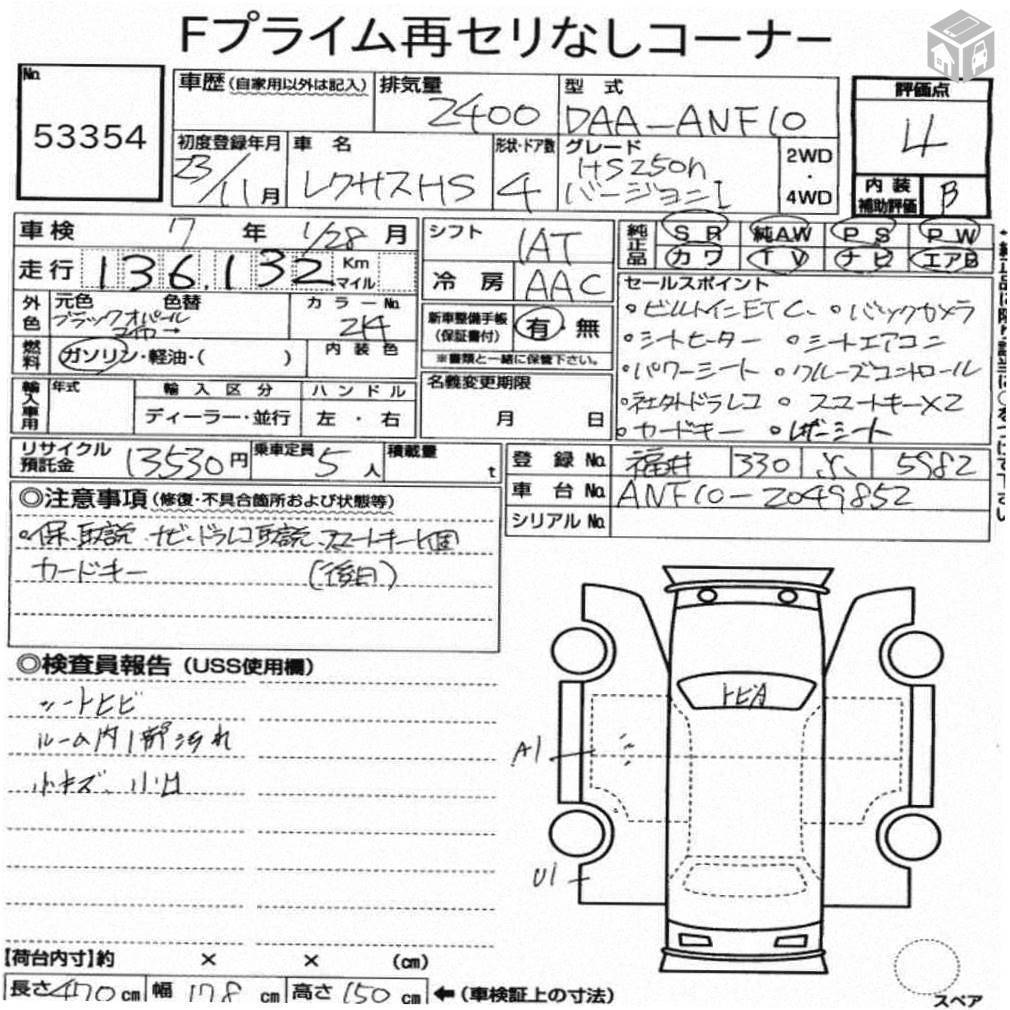 Fプライム再セリなしコーナー
No.
53354
車歴(自家用以外は記入)
排気量
2400
型式
DAA-ANF10
評価点
4
初度登録年月
23/11月
車名
レクサスHS
形状・ドア数
4
グレード
HS250h
バージョンI
2WD
・
4WD
内装
補助評価
B
車検 7年 1/28月
走行 136,132 Km
マイル
シフト
IAT
冷房
AAC
純正品
SR 純AW PS PW
カワ TV ナビ エアB
外色
元色 色替
ブラックオパール
マイカ→
カラーNo.
214
燃料
ガソリン・軽油・( )
内装色
新車整備手帳
(保証書付)
有・無
※書類と一緒に保管下さい。
セールスポイント
○ビルトインETC、○バックカメラ
○シートヒーター ○シートエアコン
○パワーシート ○クルーズコントロール
○社外ドラレコ ○スマートキー×2
○カードキー ○レザーシート
輸入車用
年式
輸入区分
ディーラー・並行
ハンドル
左・右
名義変更期限
月 日
リサイクル
預託金
13530円
乗車定員
5人
積載量
t
登録No.
福井 330 5982
車台No.
ANF10-2049852
シリアルNo.
◎注意事項(修復・不具合箇所および状態等)
○保、取説、ナビ・ドラレコ取説、スマートキー1個
カードキー (後日)
◎検査員報告(USS使用欄)
シートヒビ
ルーム内1部汚れ
小キズ、小凹
トビA
A1
U1
【荷台内寸】約 × × (cm)
長さ470cm 幅178cm 高さ150cm ←(車検証上の寸法)
スペア